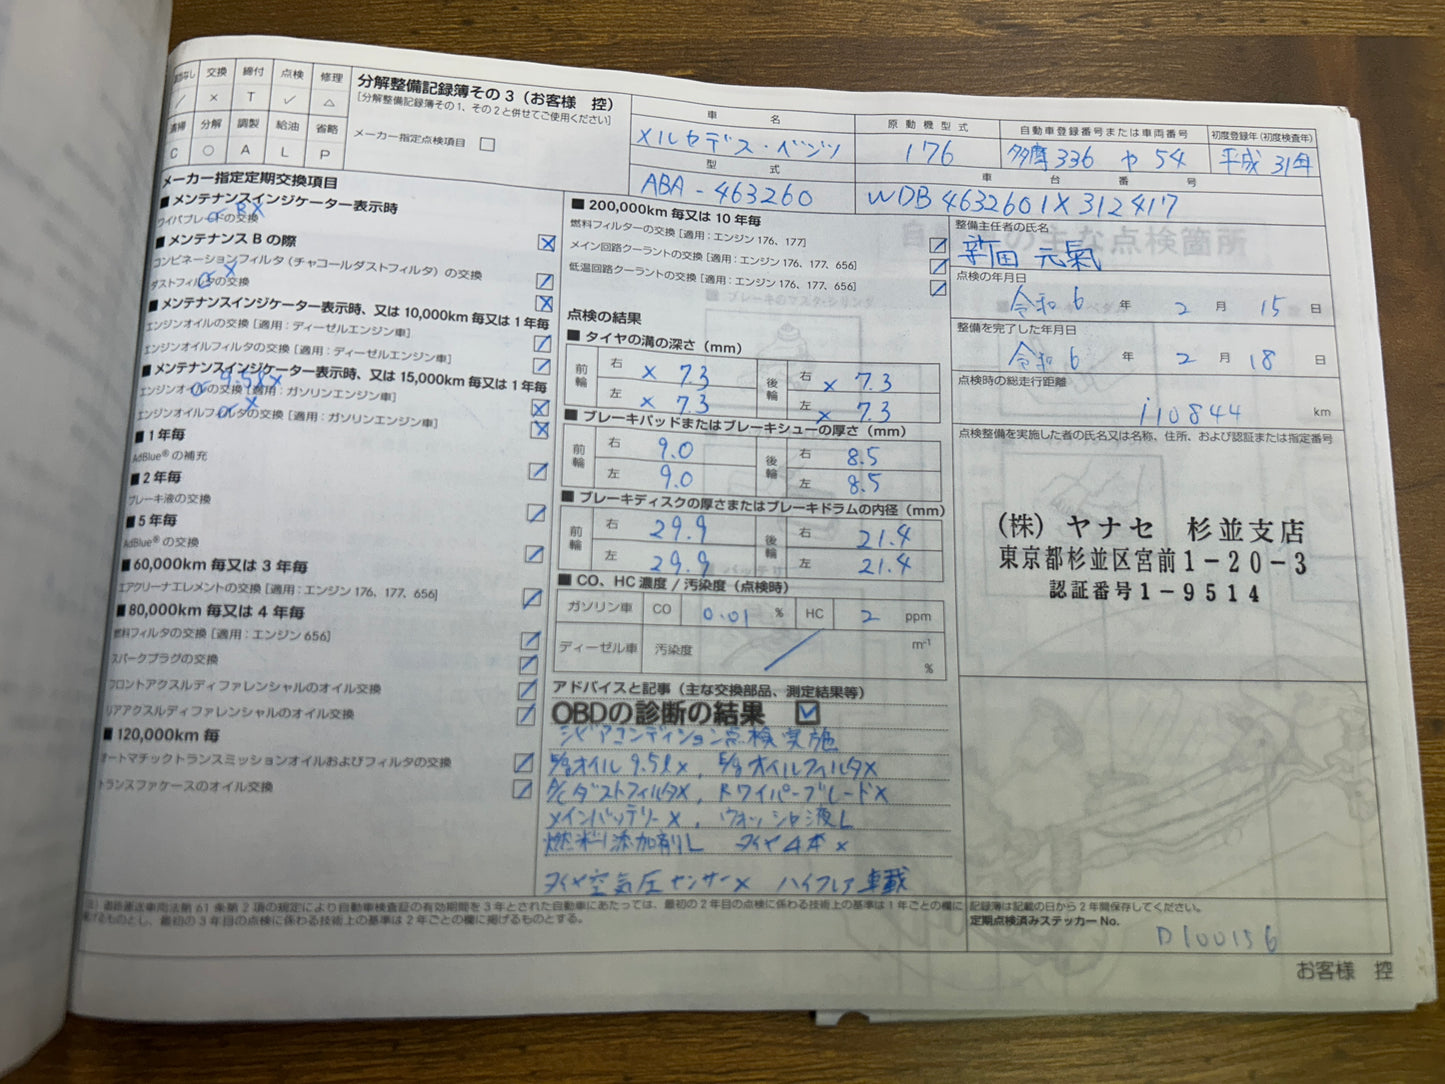 交換 締付 点検 修理
／ × T ✓ △
清掃 分解 調製 給油 省略
C ○ A L P
分解整備記録簿その3（お客様 控）
［分解整備記録簿その1、その2と併せてご使用ください］
メーカー指定点検項目 □
車 名
メルセデス・ベンツ
原動機型式
176
自動車登録番号または車両番号
多摩 336 や 54
初度登録年（初度検査年）
平成 31年
型 式
ABA-463260
車 台 番 号
WDB4632601X312417
メーカー指定定期交換項目
■ メンテナンスインジケーター表示時
ワイパブレードの交換
■ メンテナンス B の際
コンビネーションフィルタ（チャコールダストフィルタ）の交換
ダストフィルタの交換
■ メンテナンスインジケーター表示時、又は 10,000km 毎又は 1 年毎
エンジンオイルの交換［適用：ディーゼルエンジン車］
エンジンオイルフィルタの交換［適用：ディーゼルエンジン車］
■ メンテナンスインジケーター表示時、又は 15,000km 毎又は 1 年毎
9.5ℓ×
エンジンオイルの交換［適用：ガソリンエンジン車］
エンジンオイルフィルタの交換［適用：ガソリンエンジン車］
■ 1 年毎
AdBlue® の補充
■ 2 年毎
ブレーキ液の交換
■ 5 年毎
AdBlue® の交換
■ 60,000km 毎又は 3 年毎
エアクリーナエレメントの交換［適用：エンジン 176、177、656］
■ 80,000km 毎又は 4 年毎
燃料フィルタの交換［適用：エンジン 656］
スパークプラグの交換
フロントアクスルディファレンシャルのオイル交換
リアアクスルディファレンシャルのオイル交換
■ 120,000km 毎
オートマチックトランスミッションオイルおよびフィルタの交換
トランスファケースのオイル交換
■ 200,000km 毎又は 10 年毎
燃料フィルターの交換［適用：エンジン 176、177］
メイン回路クーラントの交換［適用：エンジン 176、177、656］
低温回路クーラントの交換［適用：エンジン 176、177、656］
点検の結果
■ タイヤの溝の深さ（mm）
前輪 右 × 7.3 後輪 右 × 7.3
左 × 7.3 左 × 7.3
■ ブレーキパッドまたはブレーキシューの厚さ（mm）
前輪 右 9.0 後輪 右 8.5
左 9.0 左 8.5
■ ブレーキディスクの厚さまたはブレーキドラムの内径（mm）
前輪 右 29.9 後輪 右 21.4
左 29.9 左 21.4
■ CO、HC 濃度 / 汚染度（点検時）
ガソリン車 CO 0.01 % HC 2 ppm
ディーゼル車 汚染度 ／ m⁻¹
%
アドバイスと記事（主な交換部品、測定結果等）
OBDの診断の結果 ☑
シビアコンディション点検実施
E/gオイル 9.5ℓ×、E/gオイルフィルタ×
A/Cダストフィルタ×、Rワイパーブレード×
メインバッテリー×、ウォッシャ液L
燃料添加剤L タイヤ4本×
タイヤ空気圧センサー× ハイフレア車載
整備主任者の氏名
元氣
点検の年月日
令和 6 年 2 月 15 日
整備を完了した年月日
令和 6 年 2 月 18 日
点検時の総走行距離
110844 km
点検整備を実施した者の氏名又は名称、住所、および認証または指定番号
（株）ヤナセ 杉並支店
東京都杉並区宮前1－20－3
認証番号1－9514
注）道路運送車両法第 61 条第 2 項の規定により自動車検査証の有効期間を 3 年とされた自動車にあたっては、最初の 2 年目の点検に係わる技術上の基準は 1 年ごとの欄に
掲げるものとし、最初の 3 年目の点検に係わる技術上の基準は 2 年ごとの欄に掲げるものとする。
記録簿は記載の日から 2 年間保存してください。
定期点検済みステッカー No.
D100156
お客様 控